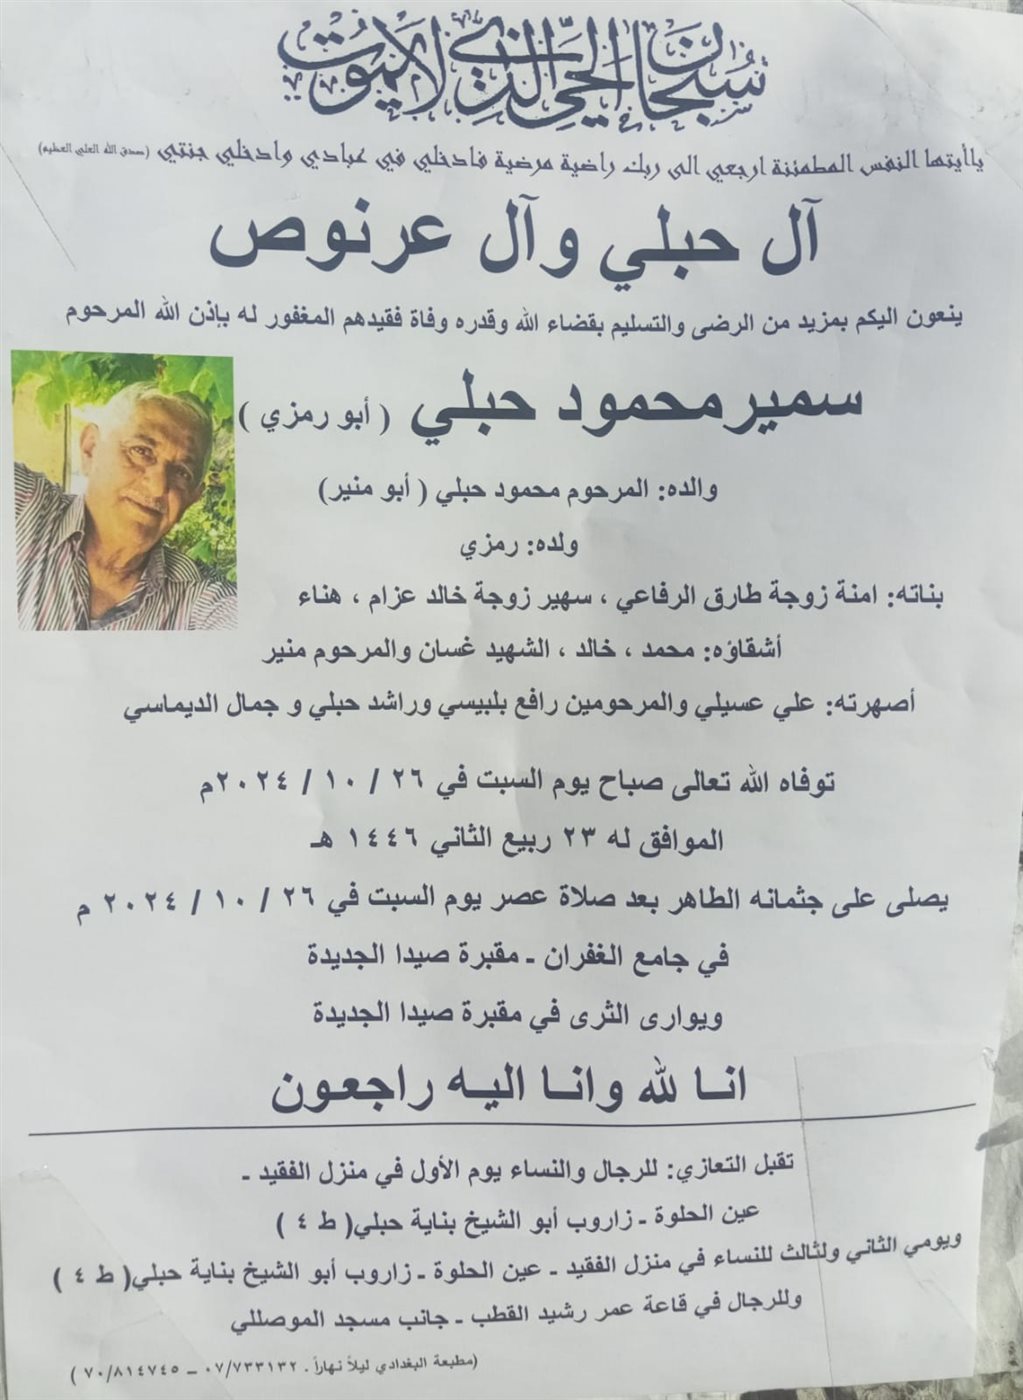 سبحان الحي الذي لا يموت
ياأيتها النفس المطمئنة ارجعي الى ربك راضية مرضية فادخلي في عبادي وادخلي جنتي (صدق الله العلي العظيم)
آل حبلي وآل عرنوص
ينعون اليكم بمزيد من الرضى والتسليم بقضاء الله وقدره وفاة فقيدهم المغفور له بإذن الله المرحوم
سمير محمود حبلي ( أبو رمزي )
والده: المرحوم محمود حبلي ( أبو منير)
ولده: رمزي
بناته: امنة زوجة طارق الرفاعي ، سهير زوجة خالد عزام ، هناء
أشقاؤه: محمد ، خالد ، الشهيد غسان والمرحوم منير
أصهرته: علي عسيلي والمرحومين رافع بلبيسي وراشد حبلي و جمال الديماسي
توفاه الله تعالى صباح يوم السبت في ٢٦ / ١٠ / ٢٠٢٤م
الموافق له ٢٣ ربيع الثاني ١٤٤٦ هـ
يصلى على جثمانه الطاهر بعد صلاة عصر يوم السبت في ٢٦ / ١٠ / ٢٠٢٤ م
في جامع الغفران - مقبرة صيدا الجديدة
ويوارى الثرى في مقبرة صيدا الجديدة
انـا لله وانـا اليـه راجعـون
تقبل التعازي: للرجال والنساء يوم الأول في منزل الفقيد -
عين الحلوة - زاروب أبو الشيخ بناية حبلي( ط ٤ )
ويومي الثاني ولثالث للنساء في منزل الفقيد - عين الحلوة - زاروب أبو الشيخ بناية حبلي( ط ٤ )
وللرجال في قاعة عمر رشيد القطب - جانب مسجد الموصللي
(مطبعة البغدادي ليلاً نهاراً . ٠٧/٧٣٣١٣٢ – ٧٠/٨١٤٧٤٥ )